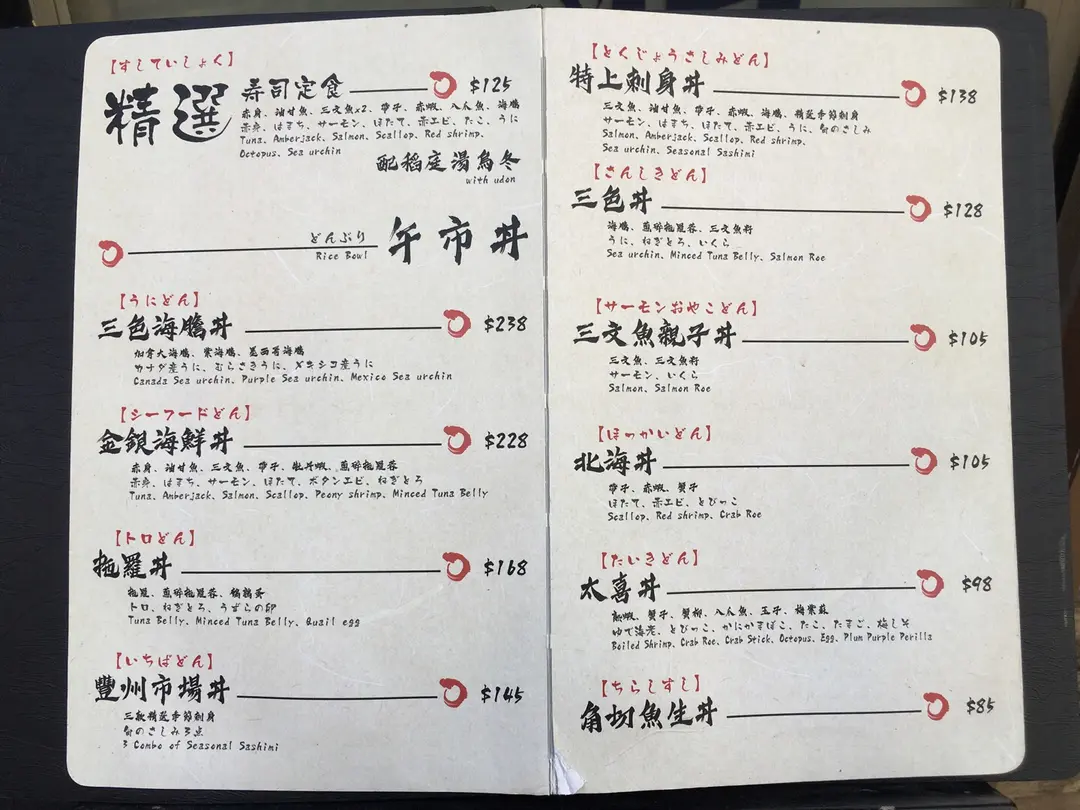 【すしていしょく】
精選 寿司定食 $125
赤身、油甘魚、三文魚x2、帶子、赤蝦、八爪魚、海膽
赤身、はまち、サーモン、ほたて、赤エビ、たこ、うに
Tuna、Amberjack、Salmon、Scallop、Red shrimp、
Octopus、Sea urchin
配稻庭湯烏冬
with udon
どんぶり
Rice Bowl
午市丼
【うにどん】
三色海膽丼 $238
加拿大海膽、紫海膽、墨西哥海膽
カナダ産うに、むらさきうに、メキシコ産うに
Canada Sea urchin、Purple Sea urchin、Mexico Sea urchin
【シーフードどん】
金銀海鮮丼 $228
赤身、油甘魚、三文魚、帶子、牡丹蝦、蔥碎拖羅蓉
赤身、はまち、サーモン、ほたて、ボタンエビ、ねぎとろ
Tuna、Amberjack、Salmon、Scallop、Peony shrimp、Minced Tuna Belly
【トロどん】
拖羅丼 $168
拖羅、蔥碎拖羅蓉、鵪鶉蛋
トロ、ねぎとろ、うずらの卵
Tuna Belly、Minced Tuna Belly、Quail egg
【いちばどん】
豐州市場丼 $145
三款精選季節刺身
旬のさしみ3点
3 Combo of Seasonal Sashimi
【とくじょうさしみどん】
特上刺身丼 $138
三文魚、油甘魚、帶子、赤蝦、海膽、精選季節刺身
サーモン、はまち、ほたて、赤エビ、うに、旬のさしみ
Salmon、Amberjack、Scallop、Red shrimp、
Sea urchin、Seasonal Sashimi
【さんしきどん】
三色丼 $128
海膽、蔥碎拖羅蓉、三文魚籽
うに、ねぎとろ、いくら
Sea urchin、Minced Tuna Belly、Salmon Roe
【サーモンおやこどん】
三文魚親子丼 $105
三文魚、三文魚籽
サーモン、いくら
Salmon、Salmon Roe
【ほっかいどん】
北海丼 $105
帶子、赤蝦、蟹子
ほたて、赤エビ、とびっこ
Scallop、Red shrimp、Crab Roe
【たいきどん】
太喜丼 $98
熟蝦、蟹子、蟹柳、八爪魚、玉子、梅紫蘇
ゆで海老、とびっこ、かにかまぼこ、たこ、たまご、梅しそ
Boiled Shrimp、Crab Roe、Crab Stick、Octopus、Egg、Plum Purple Perilla
【ちらしすし】
角切魚生丼 $85